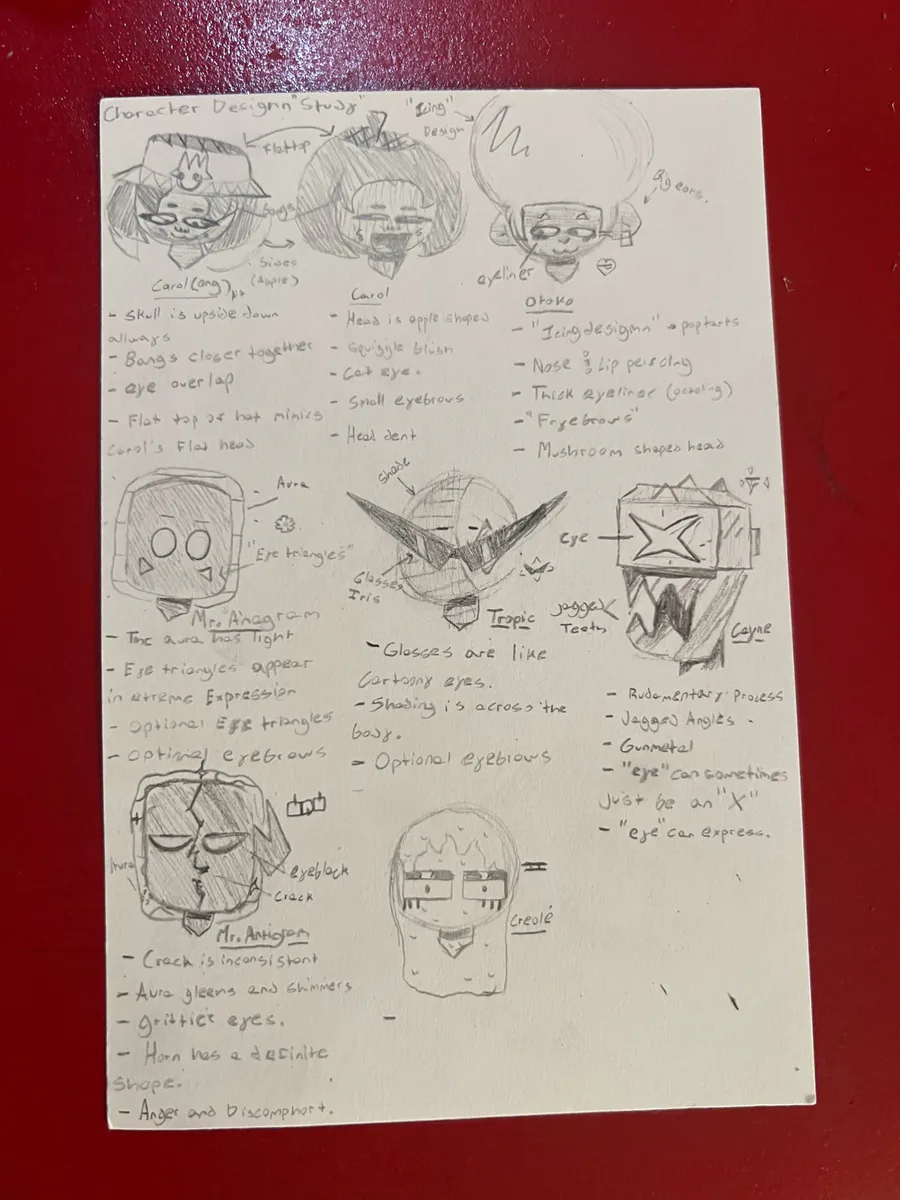 Character Designn "Study"
"Icing"
Design
Flattop
Big ears.
Bangs
Sides
(Apple)
eyeliner
Carol(ang)
- Skull is upside down
allways
- Bangs closer together
- eye overlap
- Flat top of hat mimics
Carol's Flat head
Carol
- Head is apple shaped
- Squiggle blush
- Cat eye.
- Small eyebrows
- Head dent
Otoko
- "Icingdesignn" → poptarts
- Nose & Lip peircing
- Thick eyeliner
- "Fryebrows"
- Mushroom shaped head
Aura
"Eye triangles"
Mr. Anagram
- The aura has light
- Eye triangles appear
in etreme Expression
- Optional Eye triangles
- Optional eyebrows
Shade
Glasses
Iris
Tropic
- Glosses are like
Cartoony eyes.
- Shading is across the
body.
- Optional eyebrows
Eye
Jagged
Teeth
Cayne
- Rudamentary Process
- Jagged Angles -
- Gunmetal
- "eye" can sometimes
just be an "X"
- "eye" can express.
Aura
eyeblack
Crack
Mr. Antigram
- Crack is inconsistant
- Aura gleems and shimmers
- grittier eyes.
- Horn has a definite
Shape.
- Anger and Discomphort.
Creolé
-